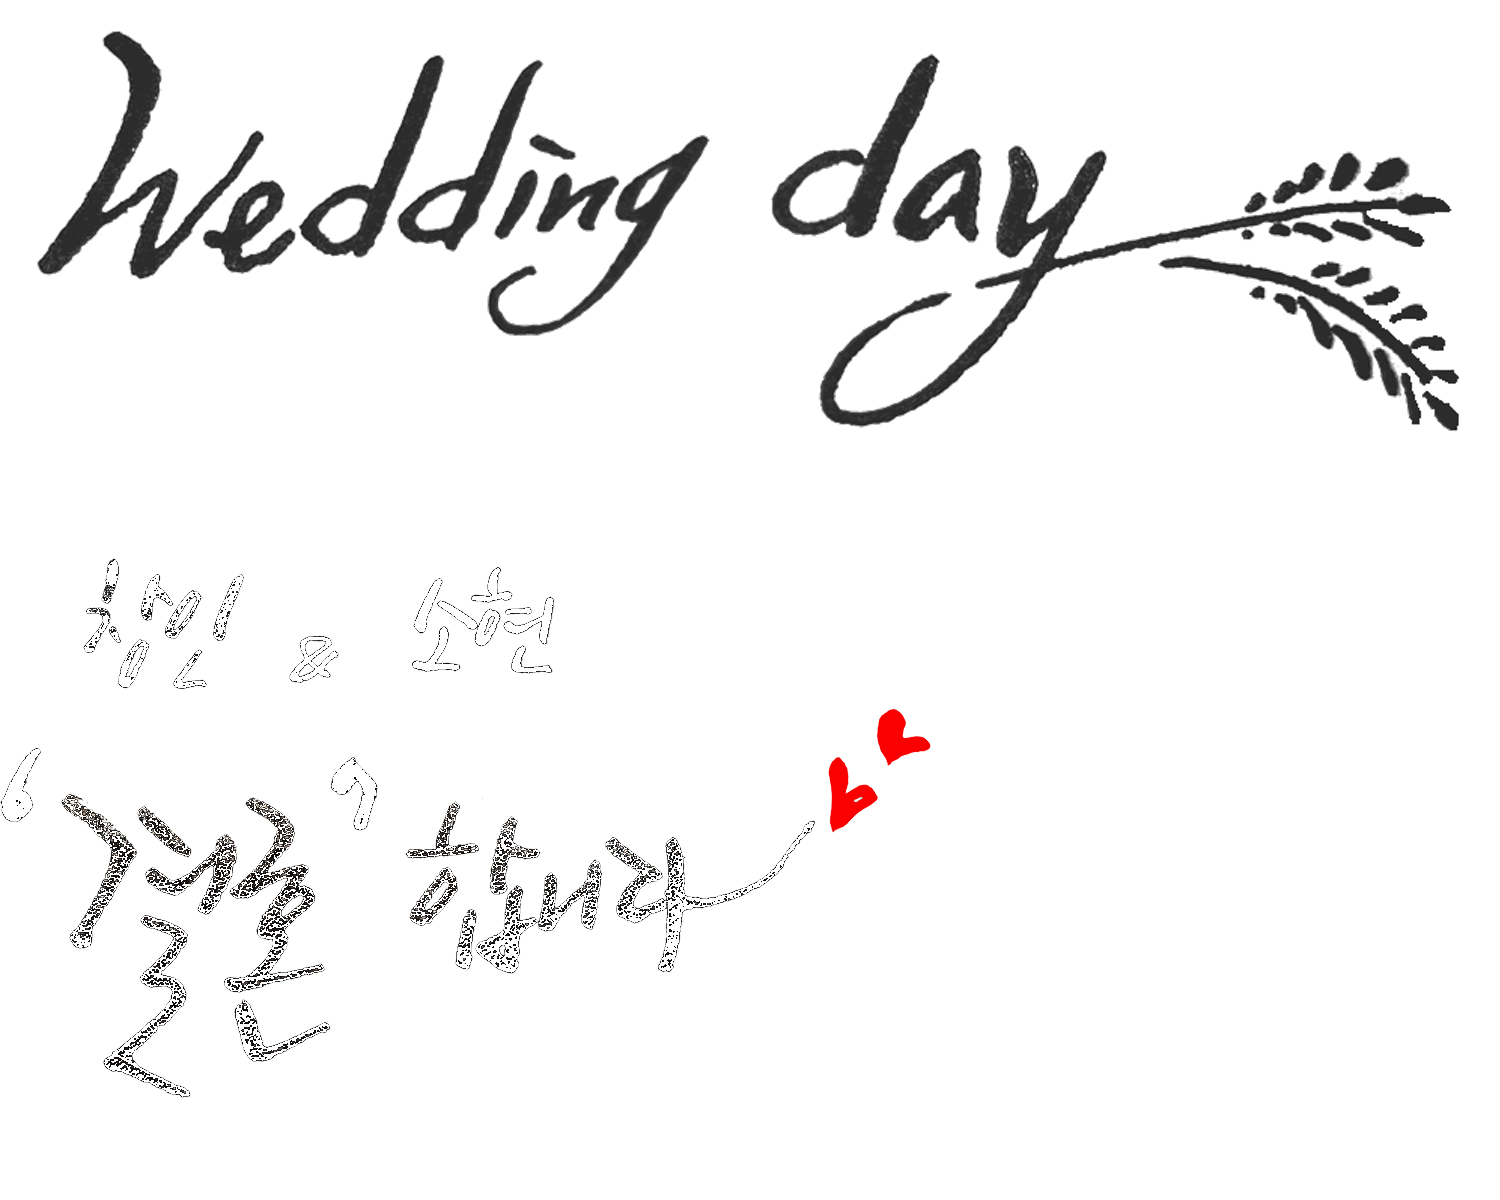 Wedding day
창민 & 소현
‘결혼’ 합니다